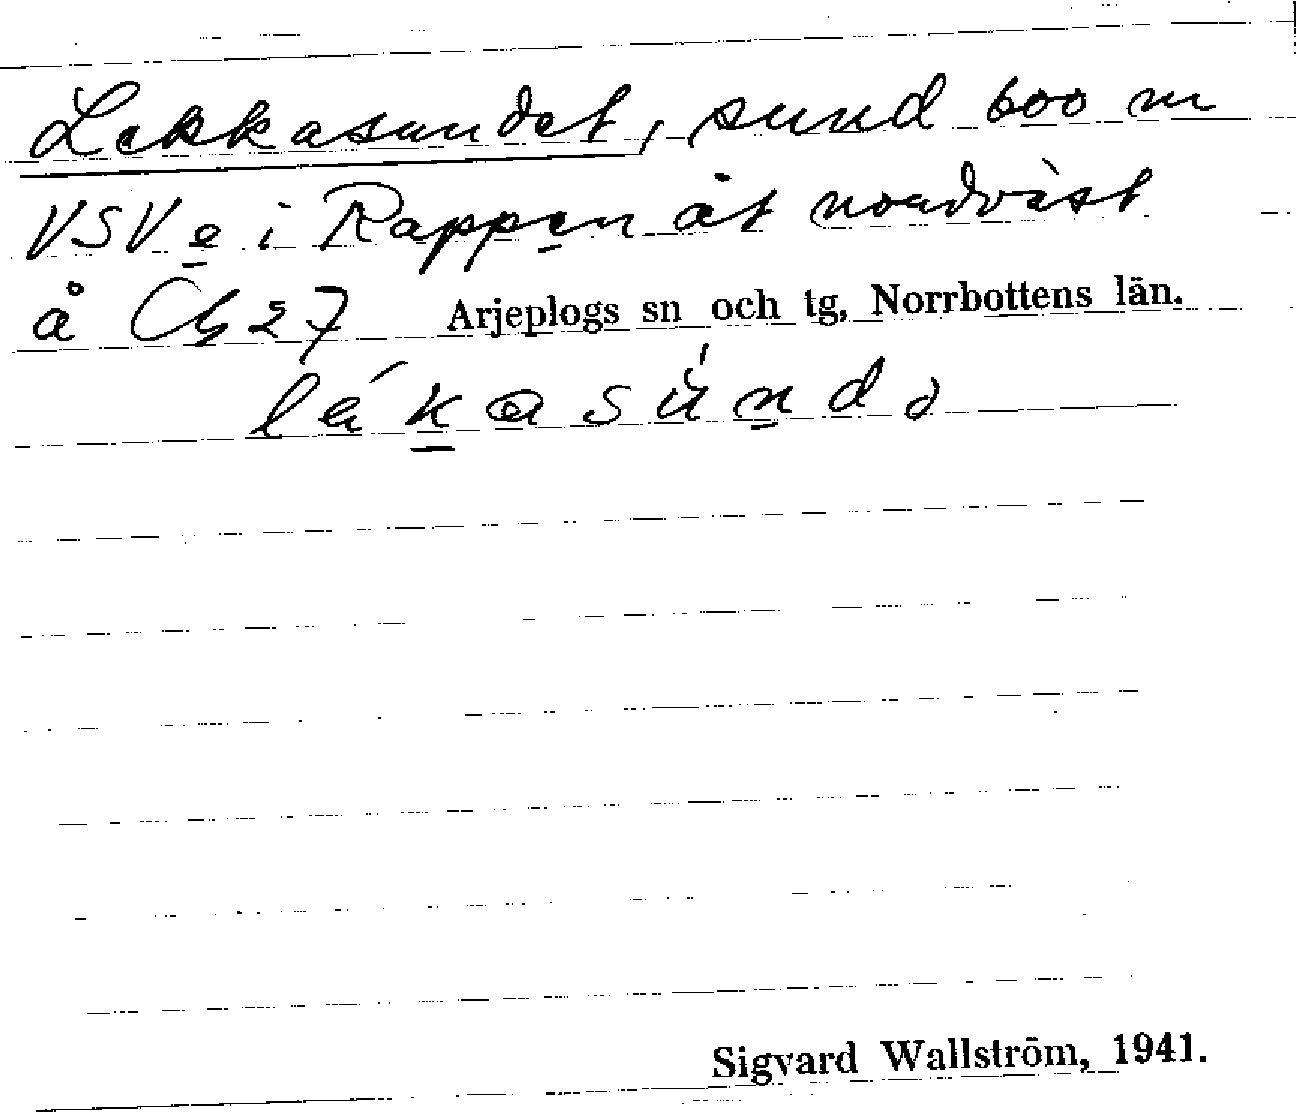 Lekkasundet, sund 600 m
VSV e i Rappen åt nordväst
å Cb 27 Arjeplogs sn och tg, Norrbottens län.
Sigvard Wallström, 1941.